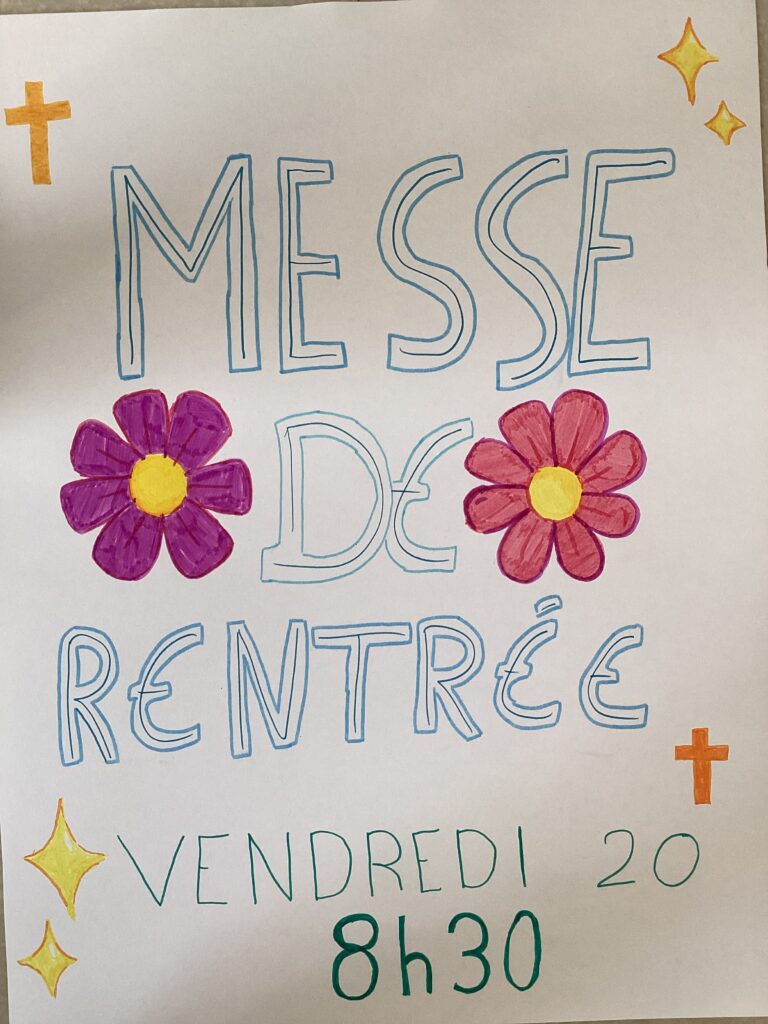 MESSE
DE
RENTRÉE
VENDREDI 20
8h30